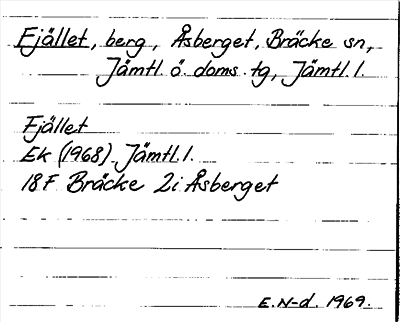 Fjället, berg, Åsberget, Bräcke sn,
Jämtl. ö. doms. tg, Jämtl. l.
Fjället
Ek (1968) Jämtl. l.
18 F Bräcke 2i Åsberget
E. N-d. 1969.